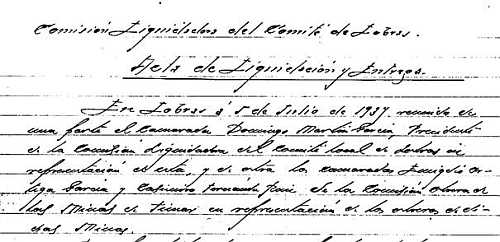 Comisión Liquidadora del Comité de Lobras.
Acta de Liquidación y Entrega.
En Lobras á 5 de Julio de 1937, reunidos de
una parte el Camarada Domingo Martín García, Presidente
de la Comisión Liquidadora del Comité local de Lobras en
representación de esta, y de otra los camaradas Ortega
García y Casimiro de la Comisión Obrera de
las Minas de Timar en representación de los obreros de di-
chas Minas.